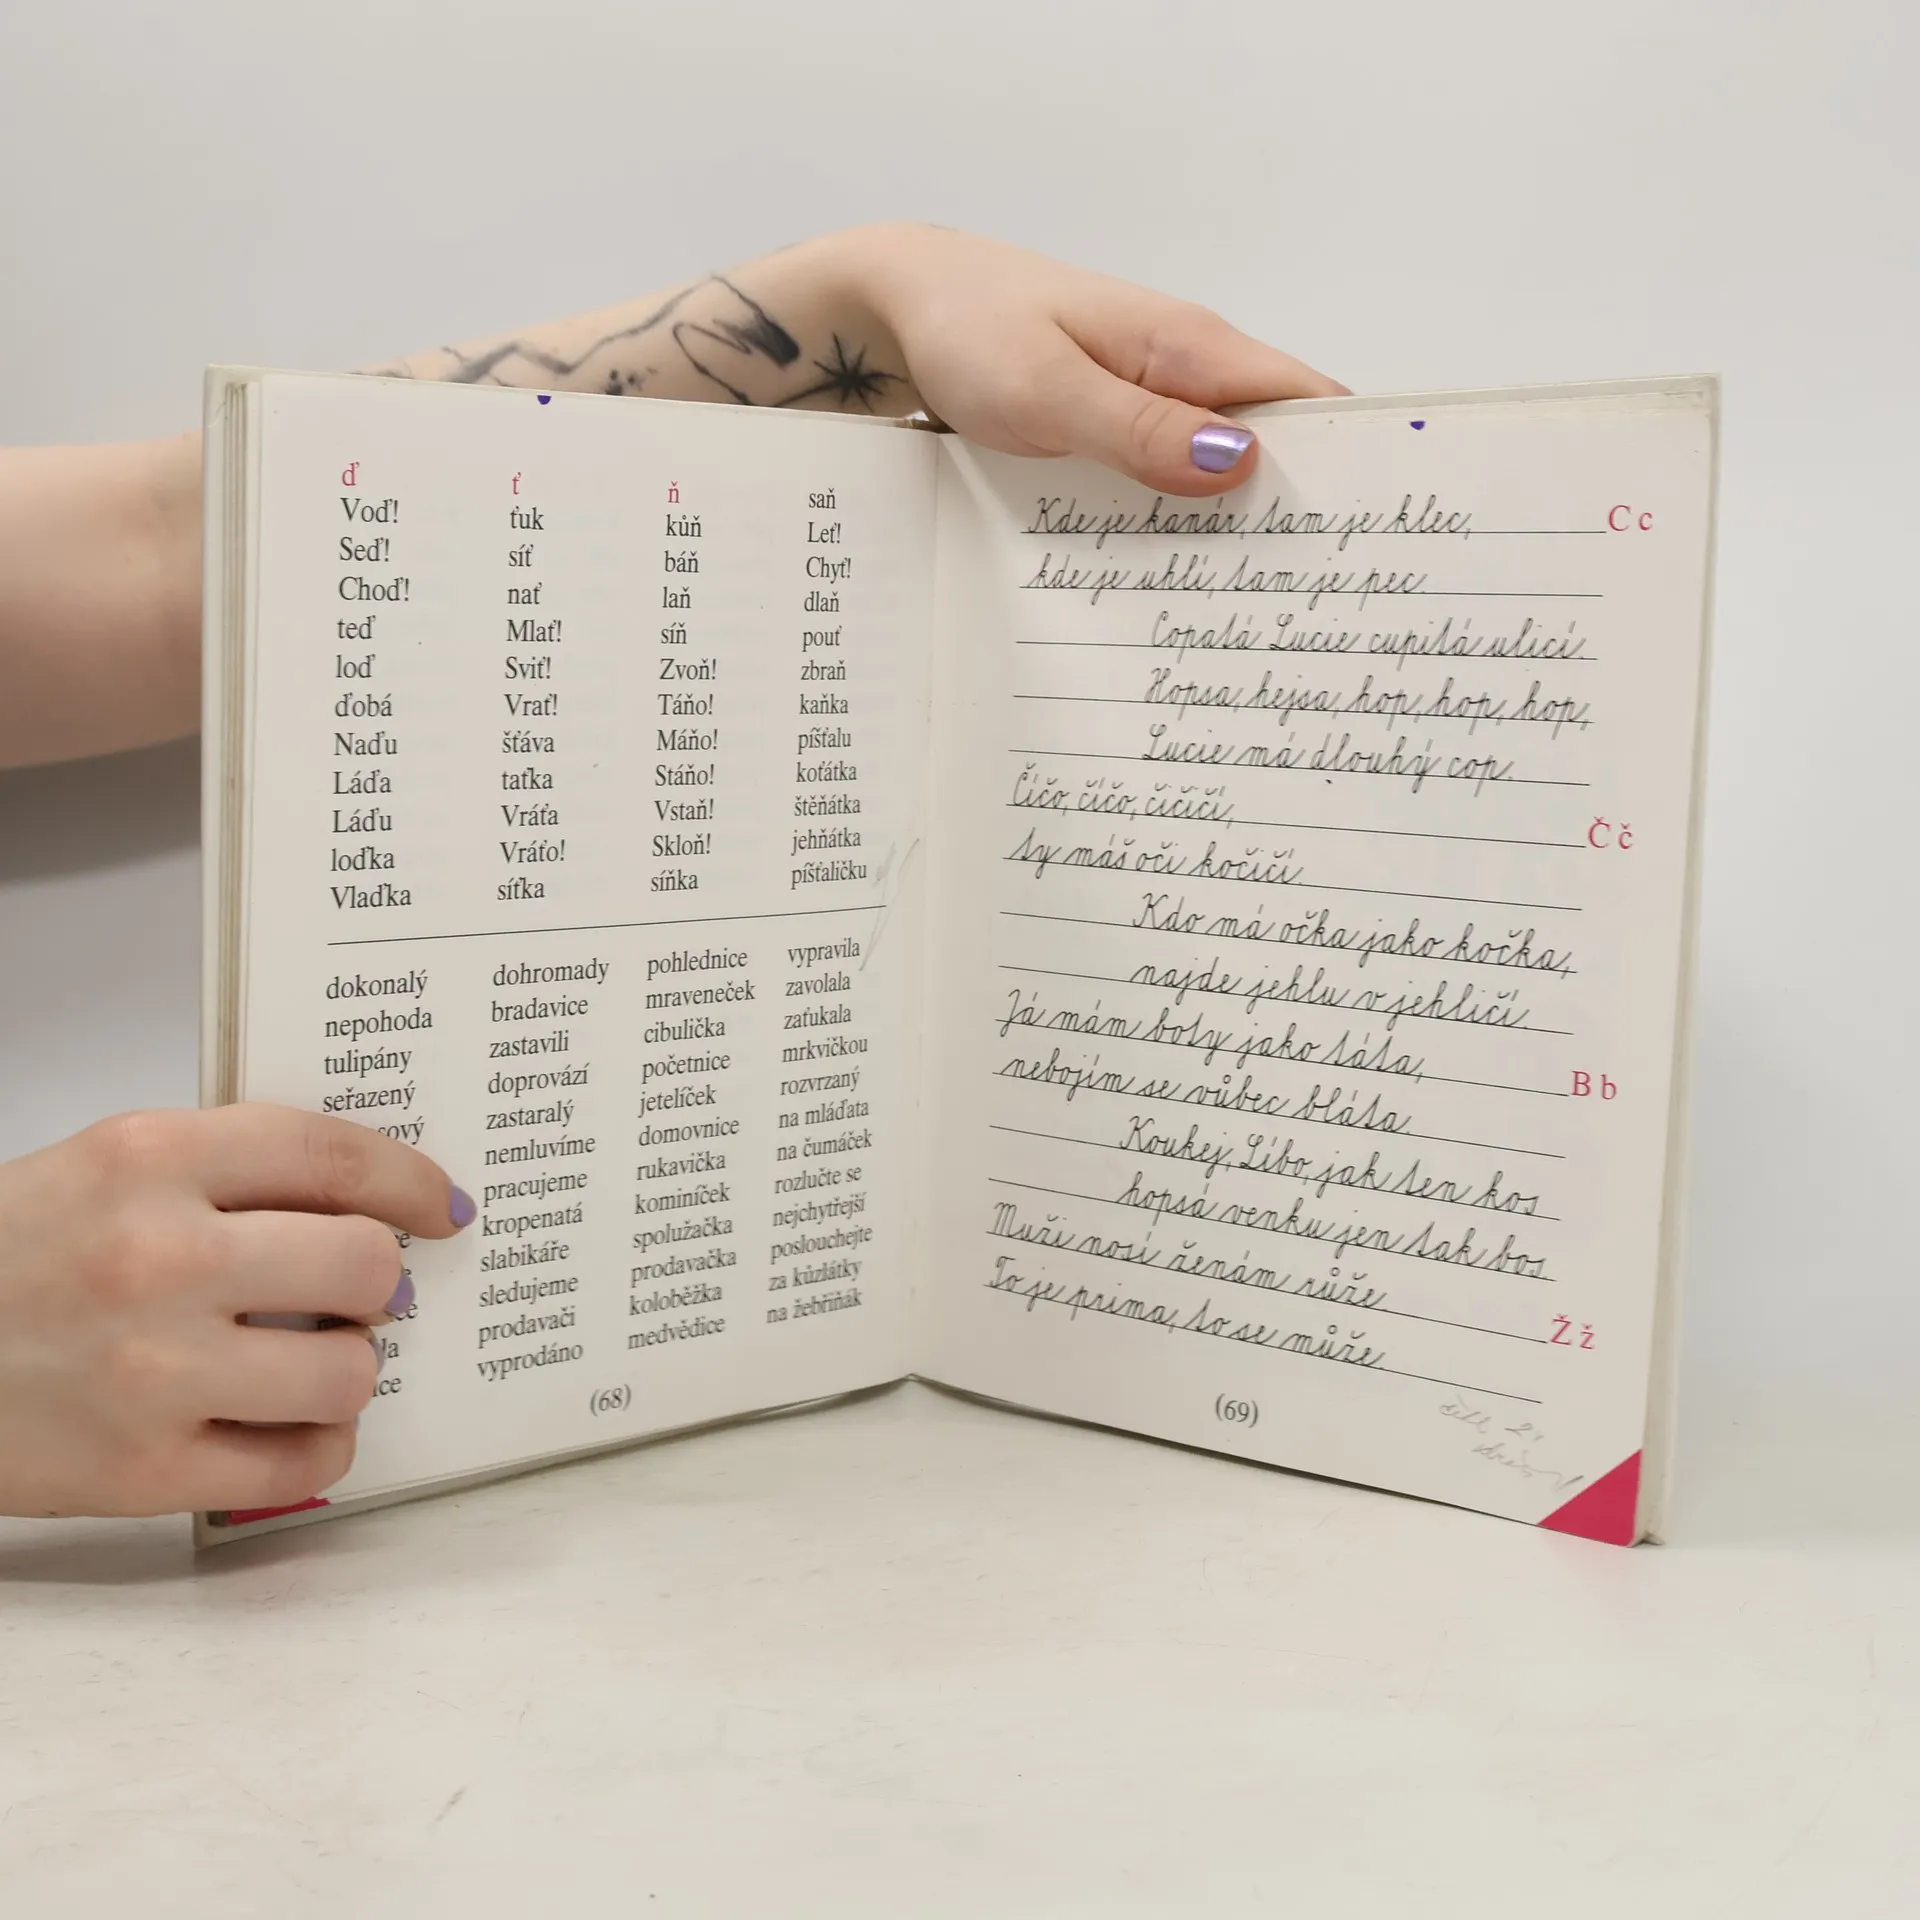 ď
Voď!
Seď!
Choď!
teď
loď
ďobá
Naďu
Láďa
Láďu
loďka
Vlaďka
ť
ťuk
síť
nať
Mlať!
Sviť!
Vrať!
šťáva
taťka
Vráťa
Vráťo!
síťka
ň
kůň
báň
laň
síň
Zvoň!
Táňo!
Máňo!
Stáňo!
Vstaň!
Skloň!
síňka
saň
Leť!
Chyť!
dlaň
pouť
zbraň
kaňka
píšťalu
koťátka
štěňátka
jehňátka
píšťaličku
dokonalý
nepohoda
tulipány
seřazený
dohromady
bradavice
zastavili
doprovází
zastaralý
nemluvíme
pracujeme
kropenatá
slabikáře
sledujeme
prodavači
vyprodáno
pohlednice
mraveneček
cibulička
početnice
jetelíček
domovnice
rukavička
kominíček
spolužačka
prodavačka
koloběžka
medvědice
vypravila
zavolala
zaťukala
mrkvičkou
rozvrzaný
na mláďata
na čumáček
rozlučte se
nejchytřejší
poslouchejte
za kůzlátky
na žebřiňák
(68)
Kde je kanár, tam je klec, C c
kde je uhlí, tam je pec.
Copatá Lucie cupitá ulicí.
Hopsa, hejsa, hop, hop, hop,
Lucie má dlouhý cop.
Číčo, číčo, čičičí, Č č
ty máš oči kočičí.
Kdo má očka jako kočka,
najde jehlu v jehličí.
Já mám boty jako táta, B b
nebojím se vůbec bláta.
Koukej, Líbo, jak ten kos
hopsá venku jen tak bos.
Muži nosí ženám růže. Ž ž
To je prima, to se může.
(69)